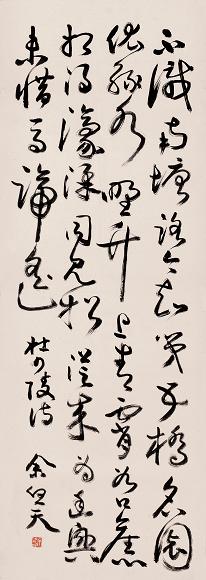 不識南塘路今知第五橋名園
依綠水野竹上青霄谷口舊
相得濠梁同見招從來為幽興
未惜馬蹄遙 杜少陵詩 余任天